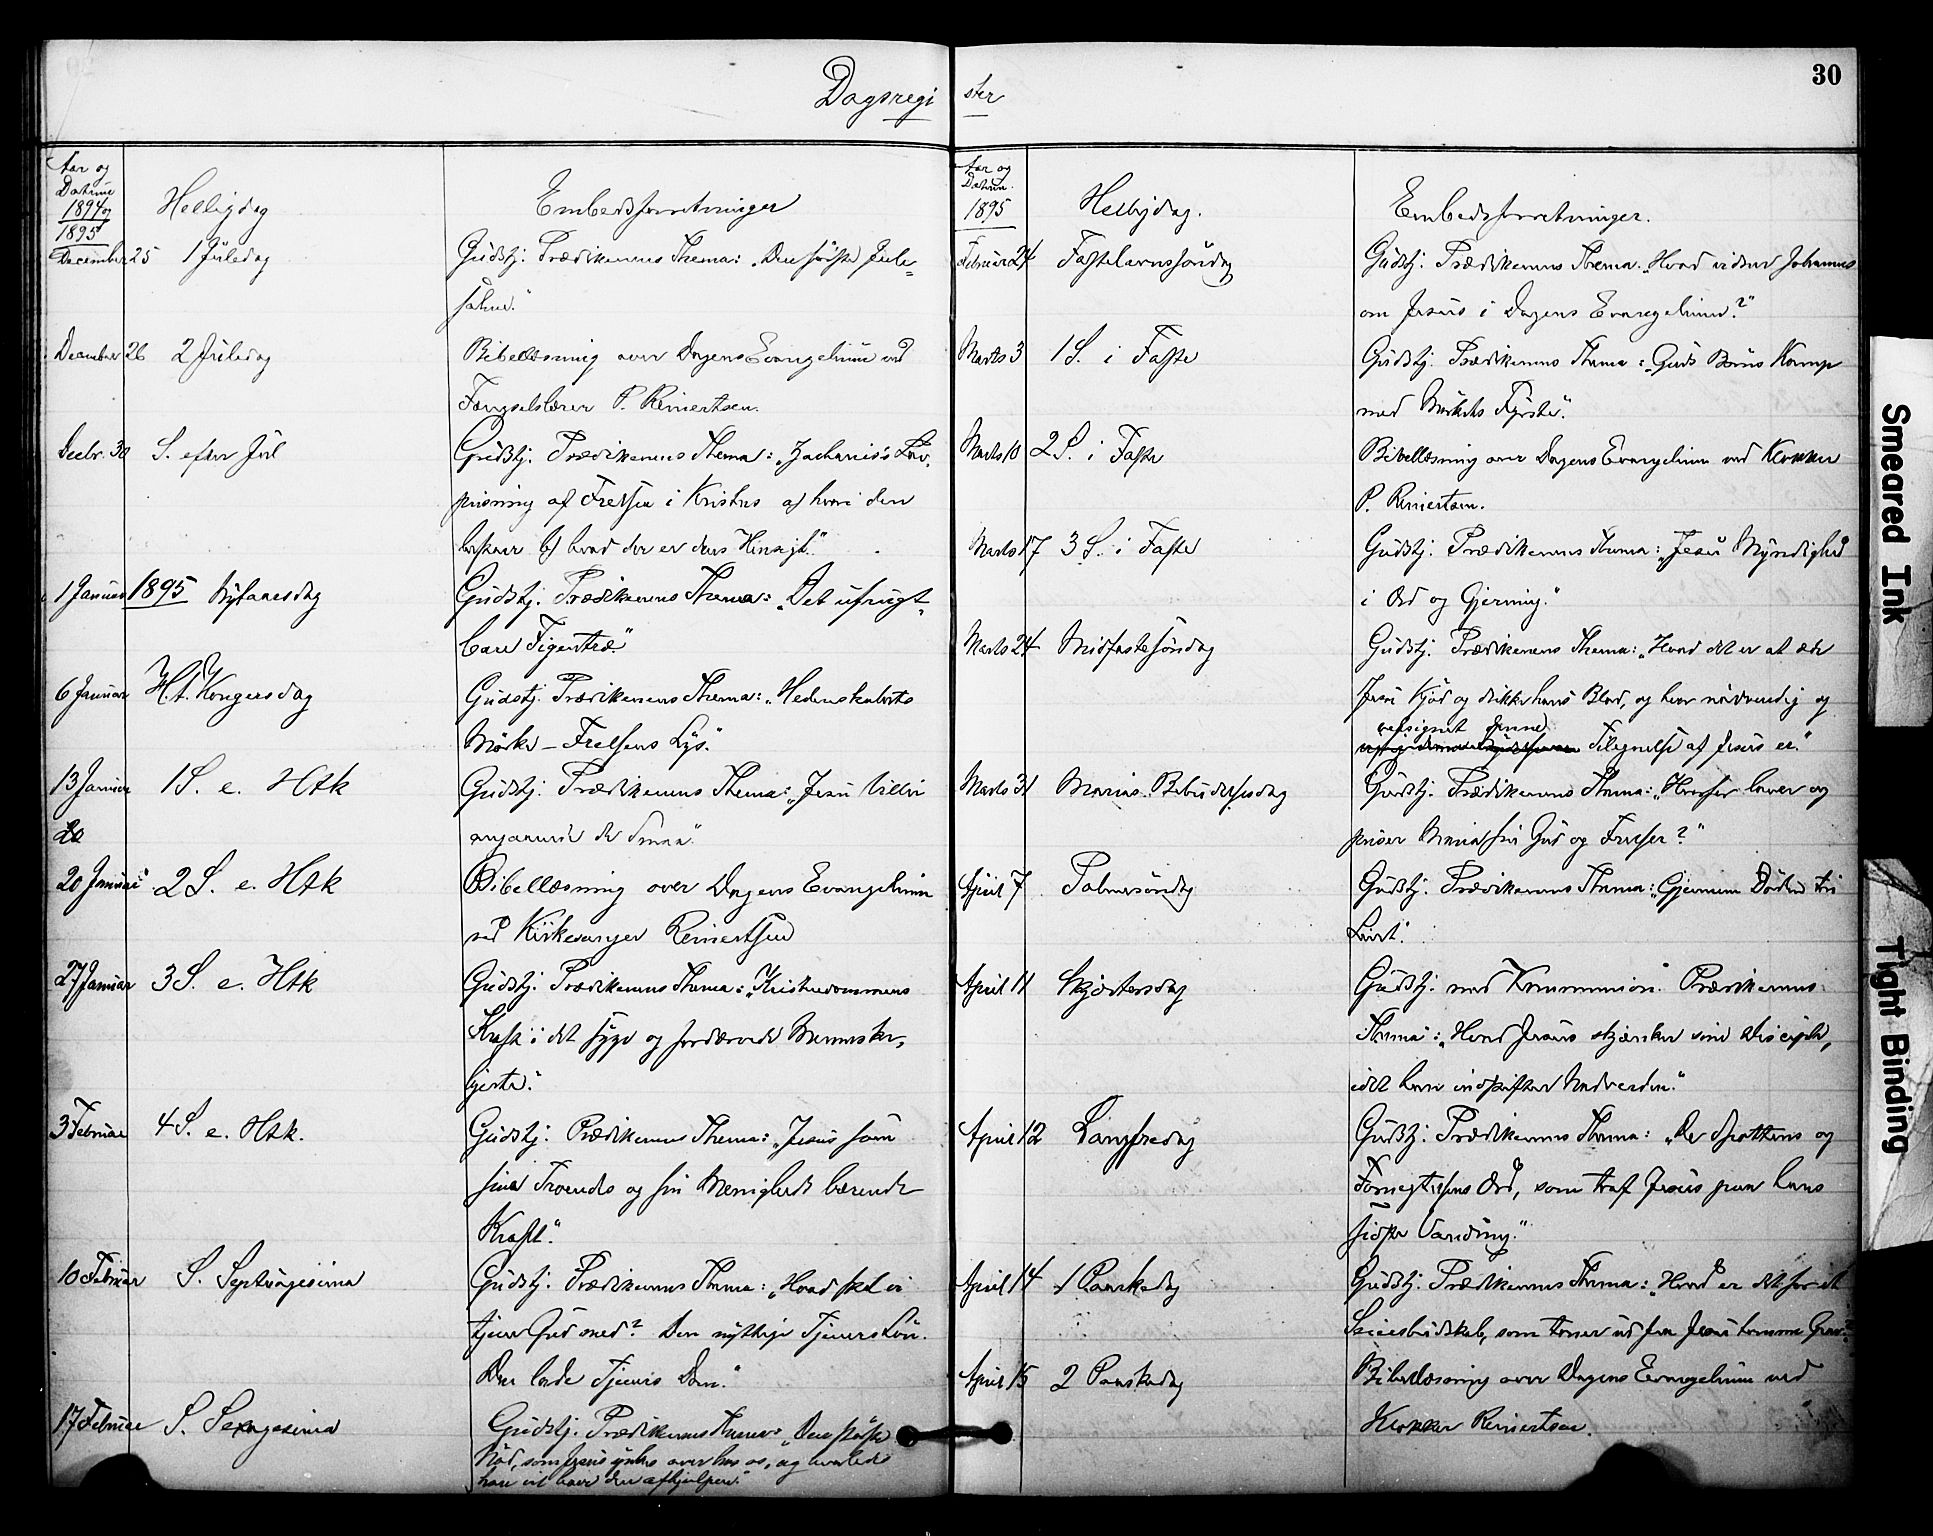 Dagsregister
30
Aar og
Datum
1894 og
1895
Helligdag
Embedsforretninger
December 25 1 Juledag Gudstj. Prædikenens Thema: „Den første Jule-
salme."
December 26 2 Juledag Bibellæsning over Dagens Evangelium ved
Fængselslærer P. Reinertsen.
Decbr. 30 S. efter Jul Gudstj. Prædikenens Thema: „Zacharias's Lov-
prisning af Frelsen i Kristus a) hvori den
består b) hvad der er dens Hensigt."
1 Januar 1895 Nytaarsdag Gudstj. Prædikenens Thema: „Det ufrugt-
bare Figentræ."
6 Januar H.t. Kongersdag Gudstj. Prædikenens Thema: „Hedenskabets
Mørke – Frelsens Lys."
13 Januar 1 S. e. Htk Gudstj. Prædikenens Thema: „Jesu
de Smaa."
20
20 Januar 2 S. e. Htk Bibellæsning over Dagens Evangelium
ved Kirkesanger Reinertsen
27 Januar 3 S. e. Htk Gudstj. Prædikenens Thema: „Kristendommens
Kraft i det syge og fordærvede Menneske-
hjerte."
3 Februar 4 S. e. Htk. Gudstj. Prædikenens Thema: „Jesus som
sine Troendes og sin Menigheds bærende
Kraft."
10 Februar S. Septuagesima Gudstj. Prædikenens Thema: „Hvad skal vi
tjene Gud med? Den nyttige Tjeners Løn.
Den lade Tjeners Dom."
17 Februar S. Sexagesima Gudstj. Prædikenens Thema: „Den største
Nød, som Jesus ynkes over hos os, og hvorledes
han vil have den afhjulpen."
Aar og
Datum.
1895
Helligdag.
Embedsforretninger.
Februar 24 Fastelavnssøndag Gudstj. Prædikenens Thema: „Hvad vidner Johannes
om Jesus i Dagens Evangelium?"
Marts 3 1 S. i Faste Gudstj. Prædikenens Thema: „Guds Børns Kamp
med Mørkets Fyrste."
Marts 10 2 S. i Faste Bibellæsning over Dagens Evangelium ved Klokker
P. Reinertsen.
Marts 17 3 S. i Faste Gudstj. Prædikenens Thema: „Jesu Myndighed
i Ord og Gjerning."
Marts 24 Midfastesøndag Gudstj. Prædikenens Thema: „Hvad det er at æde
Jesu Kjød og drikke hans Blod, og hvor nødvendig og
velsignet denne
Tilegnelse af Jesus er."
Marts 31 Mariæ Bebudelsesdag Gudstj. Prædikenens Thema: „Hvorfor lover og
priser Maria sin Gud og Frelser?"
April 7 Palmesøndag Gudstj. Prædikenens Thema: „Gjennem Døden til
Livet."
April 11 Skjærtorsdag Gudstj. med Kommunion. Prædikenens
Thema: „Hvad Jesus skjænker sine Disciple,
idet han indstifter Nadverden."
April 12 Langfredag Gudstj. Prædikenens Thema: „De Spottens og
Fornegtelsens Ord, som traf Jesus paa hans
sidste Vandring."
April 14 1 Paaskedag Gudstj. Prædikenens Thema: „Hvad er det for et
Seiersbudskab, som toner ud fra Jesu tomme Grav?"
April 15 2 Paaskedag Bibellæsning over Dagens Evangelium ved
Klokker Reinertsen.
Smeared Ink
Tight Binding